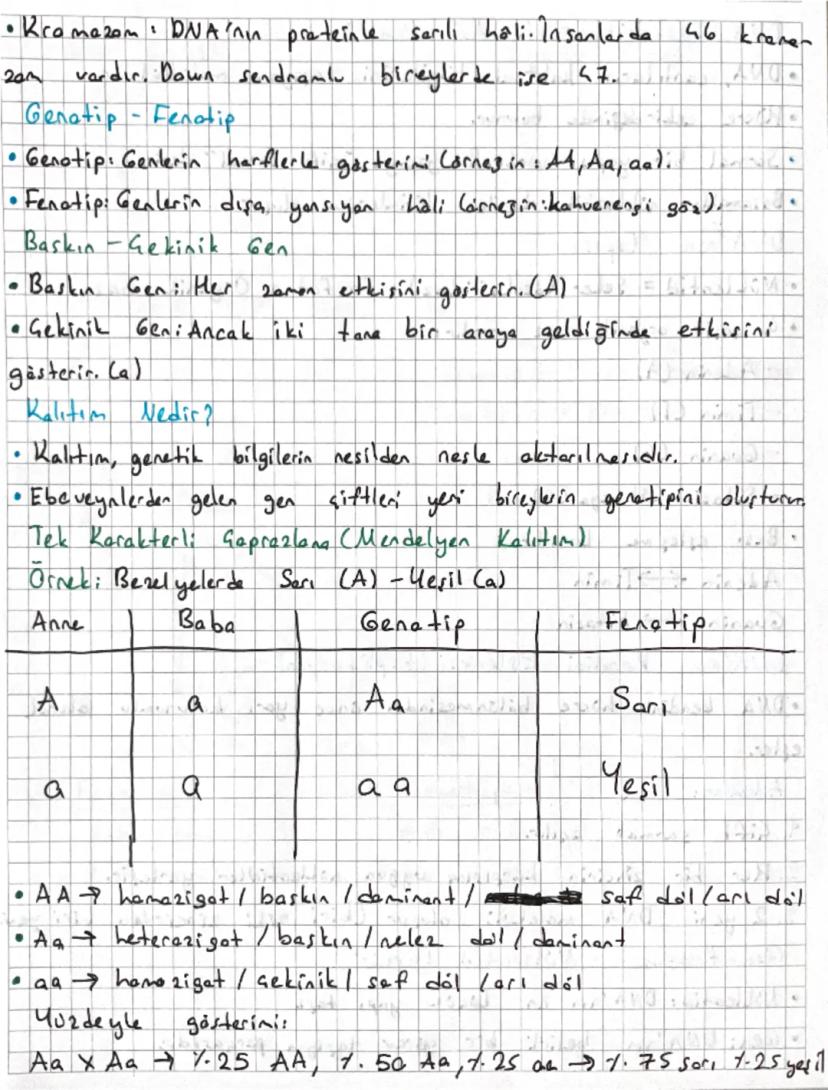 • Kromozom: DNA'nın proteinle sarılı hâli. İnsanlarda 46 kromo
zom vardır. Down sendromlu bireylerde ise 47.
Genotip - Fenotip
• Genotip: Genlerin harflerle gösterimi (örneğin: AA, Aa, aa).
• Fenotip: Genlerin dışa yansıyan hâli (örneğin: kahverengi göz).
Baskın - Çekinik Gen
• Baskın Gen: Her zaman etkisini gösterir. (A)
• Çekinik Gen: Ancak iki tane bir araya geldiğinde etkisini
gösterir. (a)
Kalıtım Nedir?
• Kalıtım, genetik bilgilerin nesilden nesle aktarılmasıdır.
• Ebeveynlerden gelen gen çiftleri yeni bireylerin genotipini oluşturur.
Tek Karakterli Çaprazlama (Mendelyen Kalıtım)
Örnek: Bezelyelerde Sarı (A) - Yeşil (a)
Anne Baba Genotip Fenotip
A a Aa Sarı
a a aa Yeşil
• AA → homozigot / baskın / dominant / saf döl / arı döl
• Aa → heterozigot / baskın / melez döl / dominant
• aa → homozigot / çekinik / saf döl / arı döl
Yüzdeyle gösterimi:
Aa x Aa → %25 AA, %50 Aa, %25 aa → %75 sarı %25 yeşil